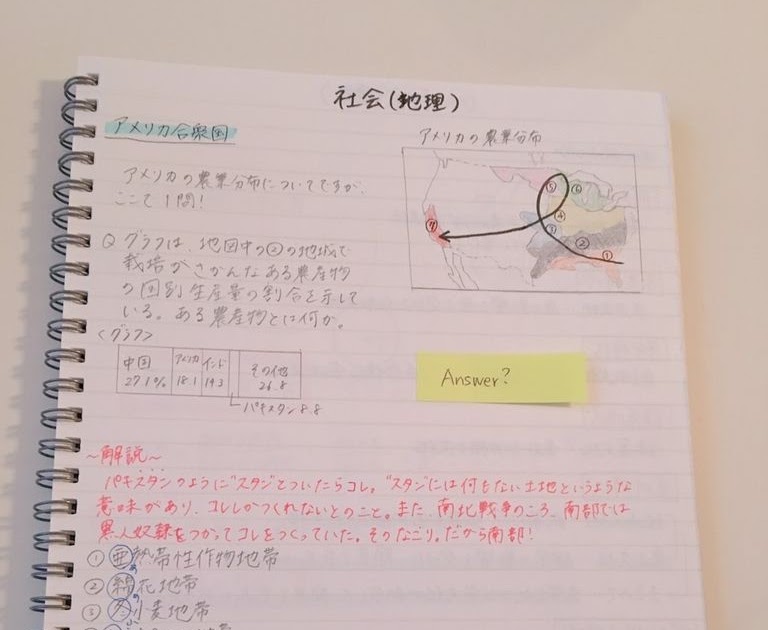 社会(地理)
アメリカ合衆国
アメリカの農業分布についてですが、
ここで1問!
Q グラフは、地図中の②の地域で
栽培がさかんなある農産物
の国別生産量の割合を示して
いる。ある農産物とは何か。
<グラフ>
中国 27.1% アメリカ 18.1 インド 19.3 その他 26.8
パキスタン8.8
アメリカの農業分布
⑤ ⑥
④
⑦ ③ ②
①
Answer?
~解説~
パキスタンのように"スタン"とついたらコレ。"スタン"には何もない土地というような
意味があり、コレしかつくれないとのこと。また、南北戦争のころ、南部では
黒人奴隷をつかってコレをつくっていた。そのなごり。だから南部!
① 亜熱帯性作物地帯
② 綿花地帯
③ 冬小麦地帯